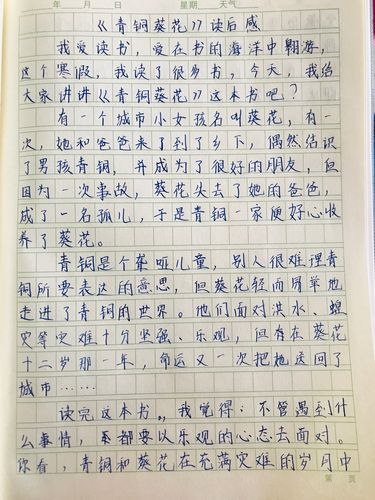 年 月 日 星期 天气
《青铜葵花》读后感
我爱读书，爱在书的海洋中翱游，
这个寒假，我读了很多书，今天，我给
大家讲讲《青铜葵花》这本书吧？
有一个城市小女孩名叫葵花，有一
次，她和爸爸来了到了乡下，偶然结识
了男孩青铜，并成为了很好的朋友，但
因为一次事故，葵花失去了她的爸爸，
成了一名孤儿，于是青铜一家便好心收
养了葵花。
青铜是个聋哑儿童，别人很难理青
铜所要表达的意思，但葵花轻而易举地
走进了青铜的世界。他们面对洪水、蝗
灾等灾难十分坚强、乐观，但存在葵花
十二岁那一年，命运又一次把她送回了
城市……
读完这本书，我觉得：不管遇到什
么事情，都要以乐观的心态去面对。
你看，青铜和葵花在充满灾难的岁月中
第 页